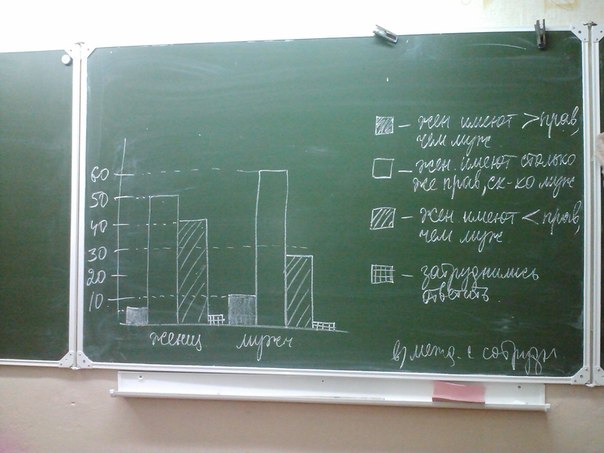 60
50
40
30
20
10
женщ
мужч
– жен имеют > прав,
чем муж
– жен. имеют столько
же прав, ск-ко муж
– жен. имеют < прав,
чем муж
– затруднились
ответить